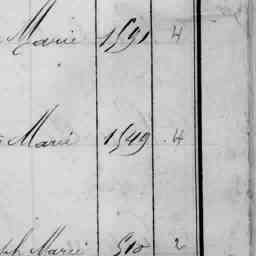 Marie 1591 4
Marie 1549 4
ph Marie 510 2